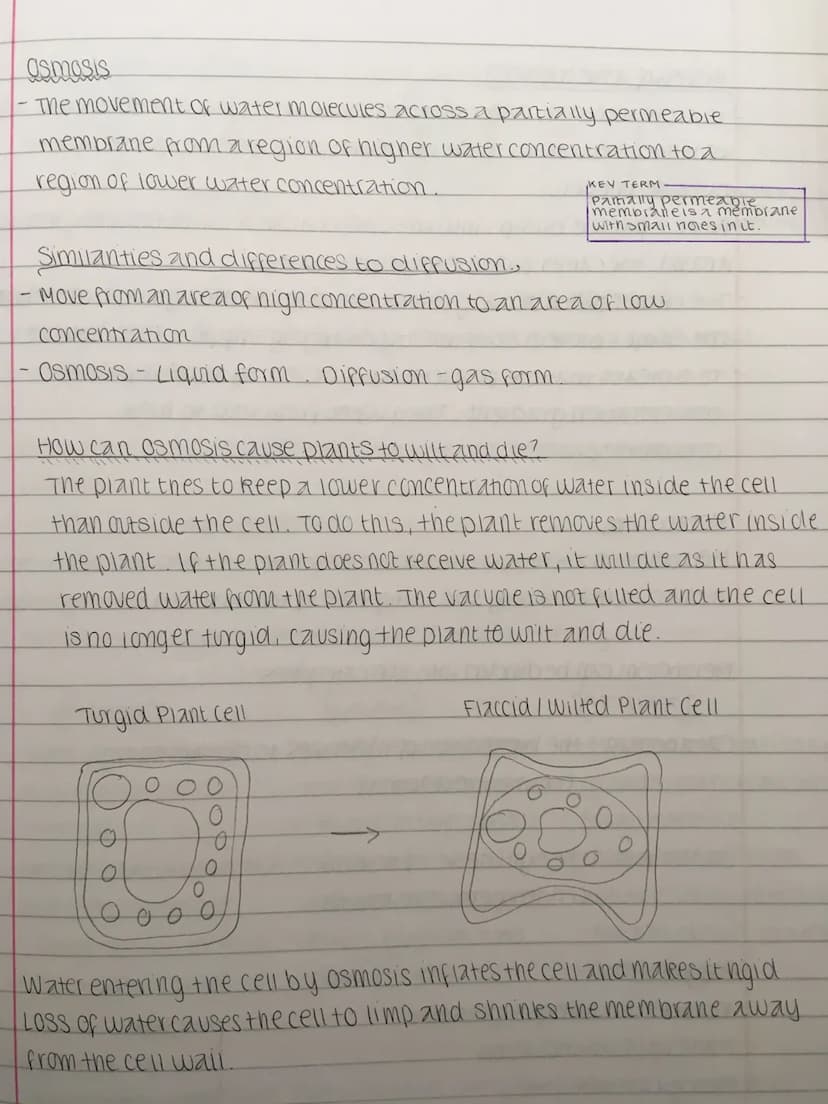 Osmosis
- The movement of water molecules across a partially permeable
membrane from a region of higher water concentration to a
region of lower water concentration.
KEY TERM
Partially permeable
membrane is a membrane
with small holes in it.
Similarities and differences to diffusion.
- Move from an area of high concentration to an area of low
concentration
- Osmosis - Liquid form. Diffusion - gas form.
How can osmosis cause plants to wilt and die?
The plant tries to keep a lower concentration of water inside the cell
than outside the cell. To do this, the plant removes the water inside
the plant. If the plant does not receive water, it will die as it has
removed water from the plant. The vacuole is not filled and the cell
is no longer turgid, causing the plant to wilt and die.
Turgid Plant Cell
Flaccid / Wilted Plant Cell
Water entering the cell by osmosis inflates the cell and makes it rigid
Loss of water causes the cell to limp and shrinks the membrane away
from the cell wall.